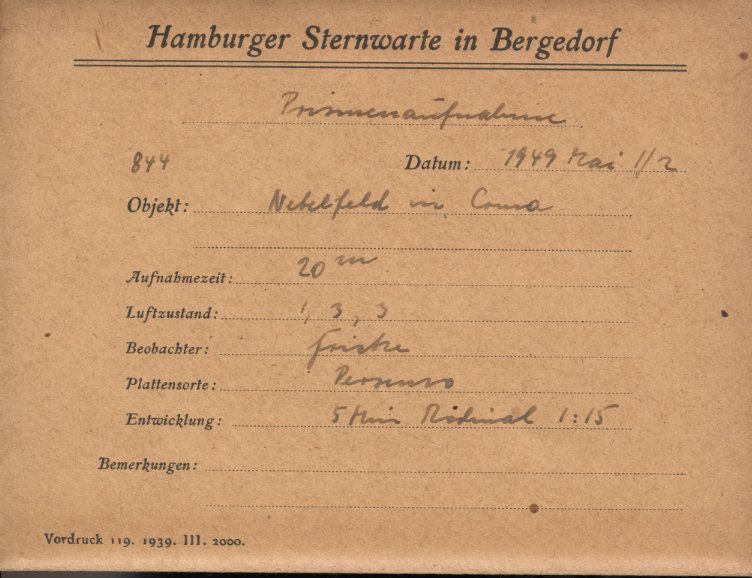 Hamburger Sternwarte in Bergedorf
Prismenaufnahme
844 Datum: 1949 Mai 1/2
Objekt: Nebelfeld in Coma
Aufnahmezeit: 20 m
Luftzustand: 1, 3, 3
Beobachter:
Plattensorte: Persenso
Entwicklung: 5 Min Rodinal 1:15
Bemerkungen:
Vordruck 119. 1939. III. 2000.